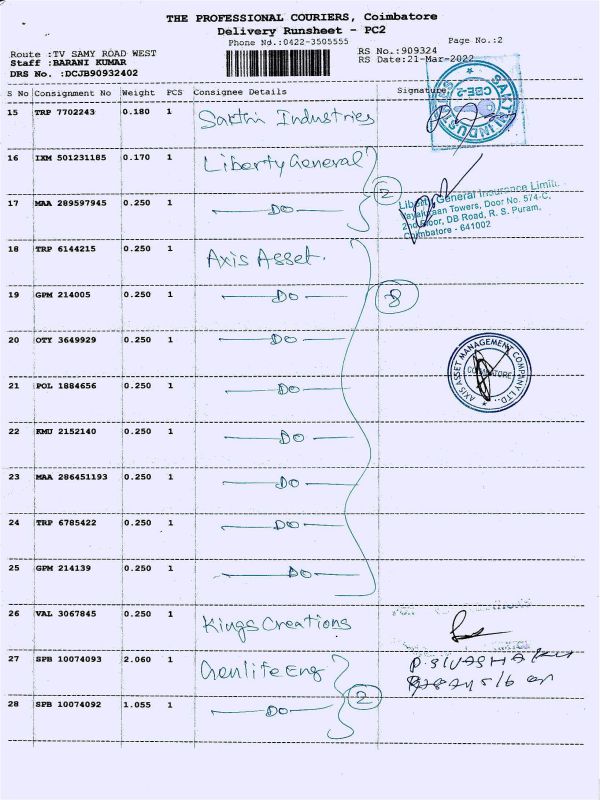 THE PROFESSIONAL COURIERS, Coimbatore
Delivery Runsheet - PC2
Phone No.:0422-3505555
Page No.:2
Route :TV SAMY ROAD WEST
Staff :BARANI KUMAR
DRS No. :DCJB90932402
RS No.:909324
RS Date:21-Mar-2022
S No Consignment No Weight PCS Consignee Details Signature
15 TRP 7702243 0.180 1 Sakthi Industries
SAKTHI INDUSTRIES CBE-2
16 IXM 501231185 0.170 1 Liberty General
2
17 MAA 289597945 0.250 1 DO
Liberty General Insurance Limit
Towers, Door No. 574-C,
2nd Floor, DB Road, R. S. Puram,
Coimbatore - 641002
18 TRP 6144215 0.250 1 Axis Asset.
8
19 GPM 214005 0.250 1 DO
20 OTY 3649929 0.250 1 DO
21 POL 1884656 0.250 1 DO
AXIS ASSET MANAGEMENT COMPANY LTD.
COIMBATORE
22 KMU 2152140 0.250 1 DO
23 MAA 286451193 0.250 1 DO
24 TRP 6785422 0.250 1 DO
25 GPM 214139 0.250 1 DO
26 VAL 3067845 0.250 1 Kings Creations
27 SPB 10074093 2.060 1 Genlife Eng
2
28 SPB 10074092 1.055 1 DO